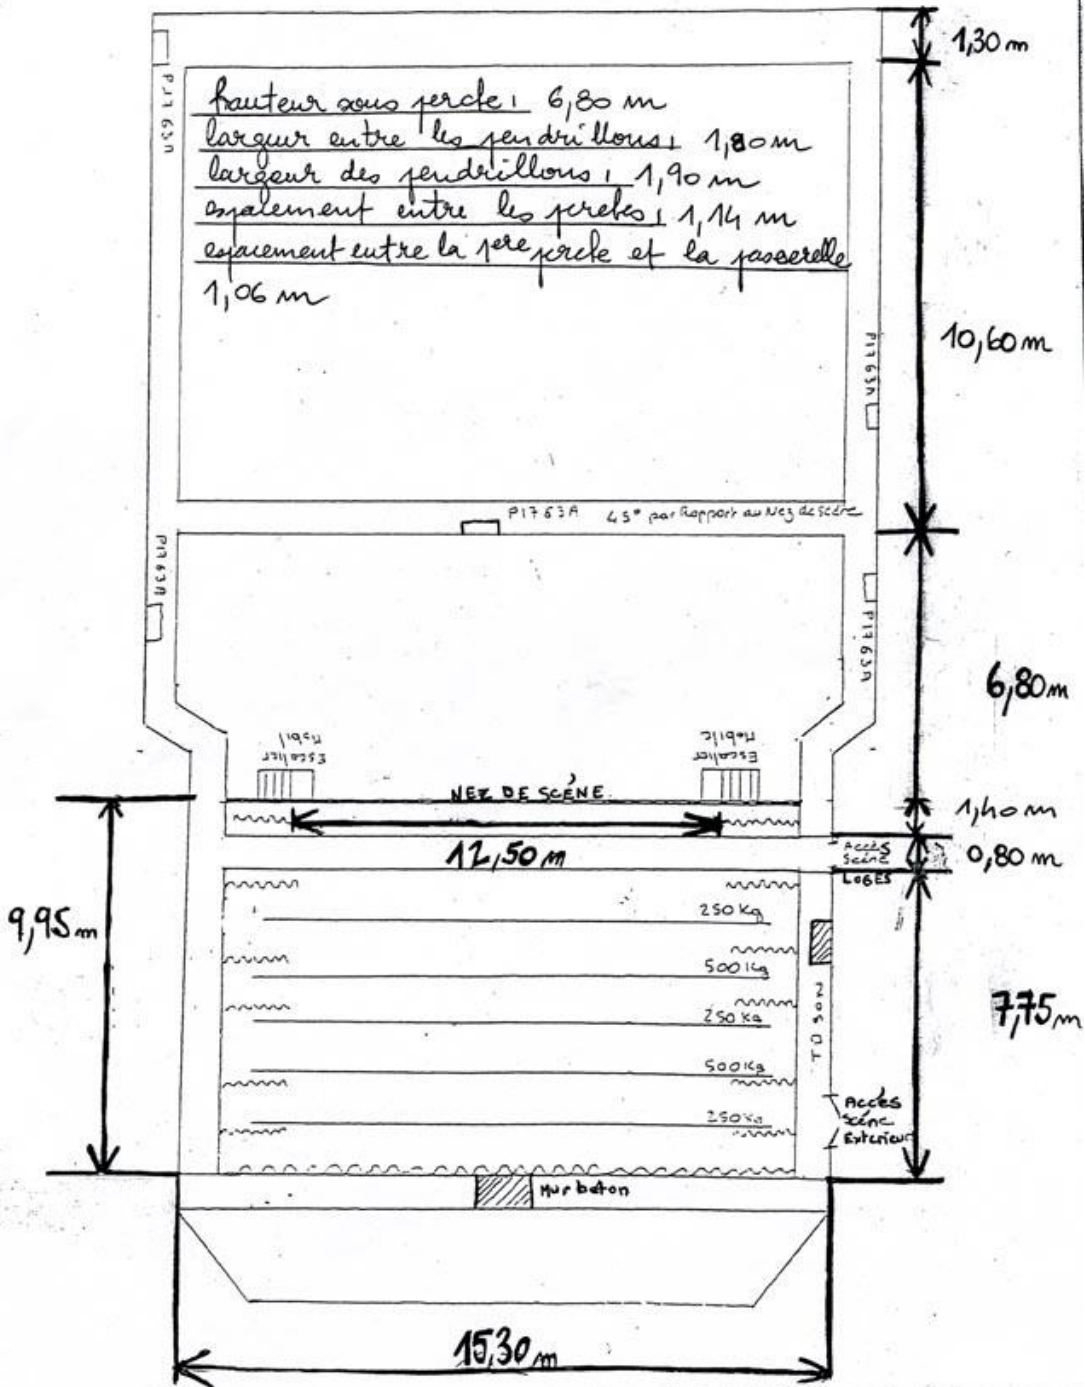 1,30 m
P1763A
hauteur sous perche : 6,80 m
largeur entre les pendrillons : 1,80 m
largeur des pendrillons : 1,90 m
espacement entre les perches : 1,14 m
espacement entre la 1ere perche et la passerelle
1,06 m
10,60 m
P1763A
P1763A 45° par Rapport au Nez de scène
P1763A
P1763A
6,80 m
Escalier
Mobil
Escalier
Mobile
NEZ DE SCÉNE
1,40 m
12,50 m
Accès
Scène
LOGES
0,80 m
9,95 m
250 Kg
500 Kg
250 Kg
500 Kg
250 Kg
TD SON
7,75 m
Accès
scène
Exterieur
Mur beton
15,30 m